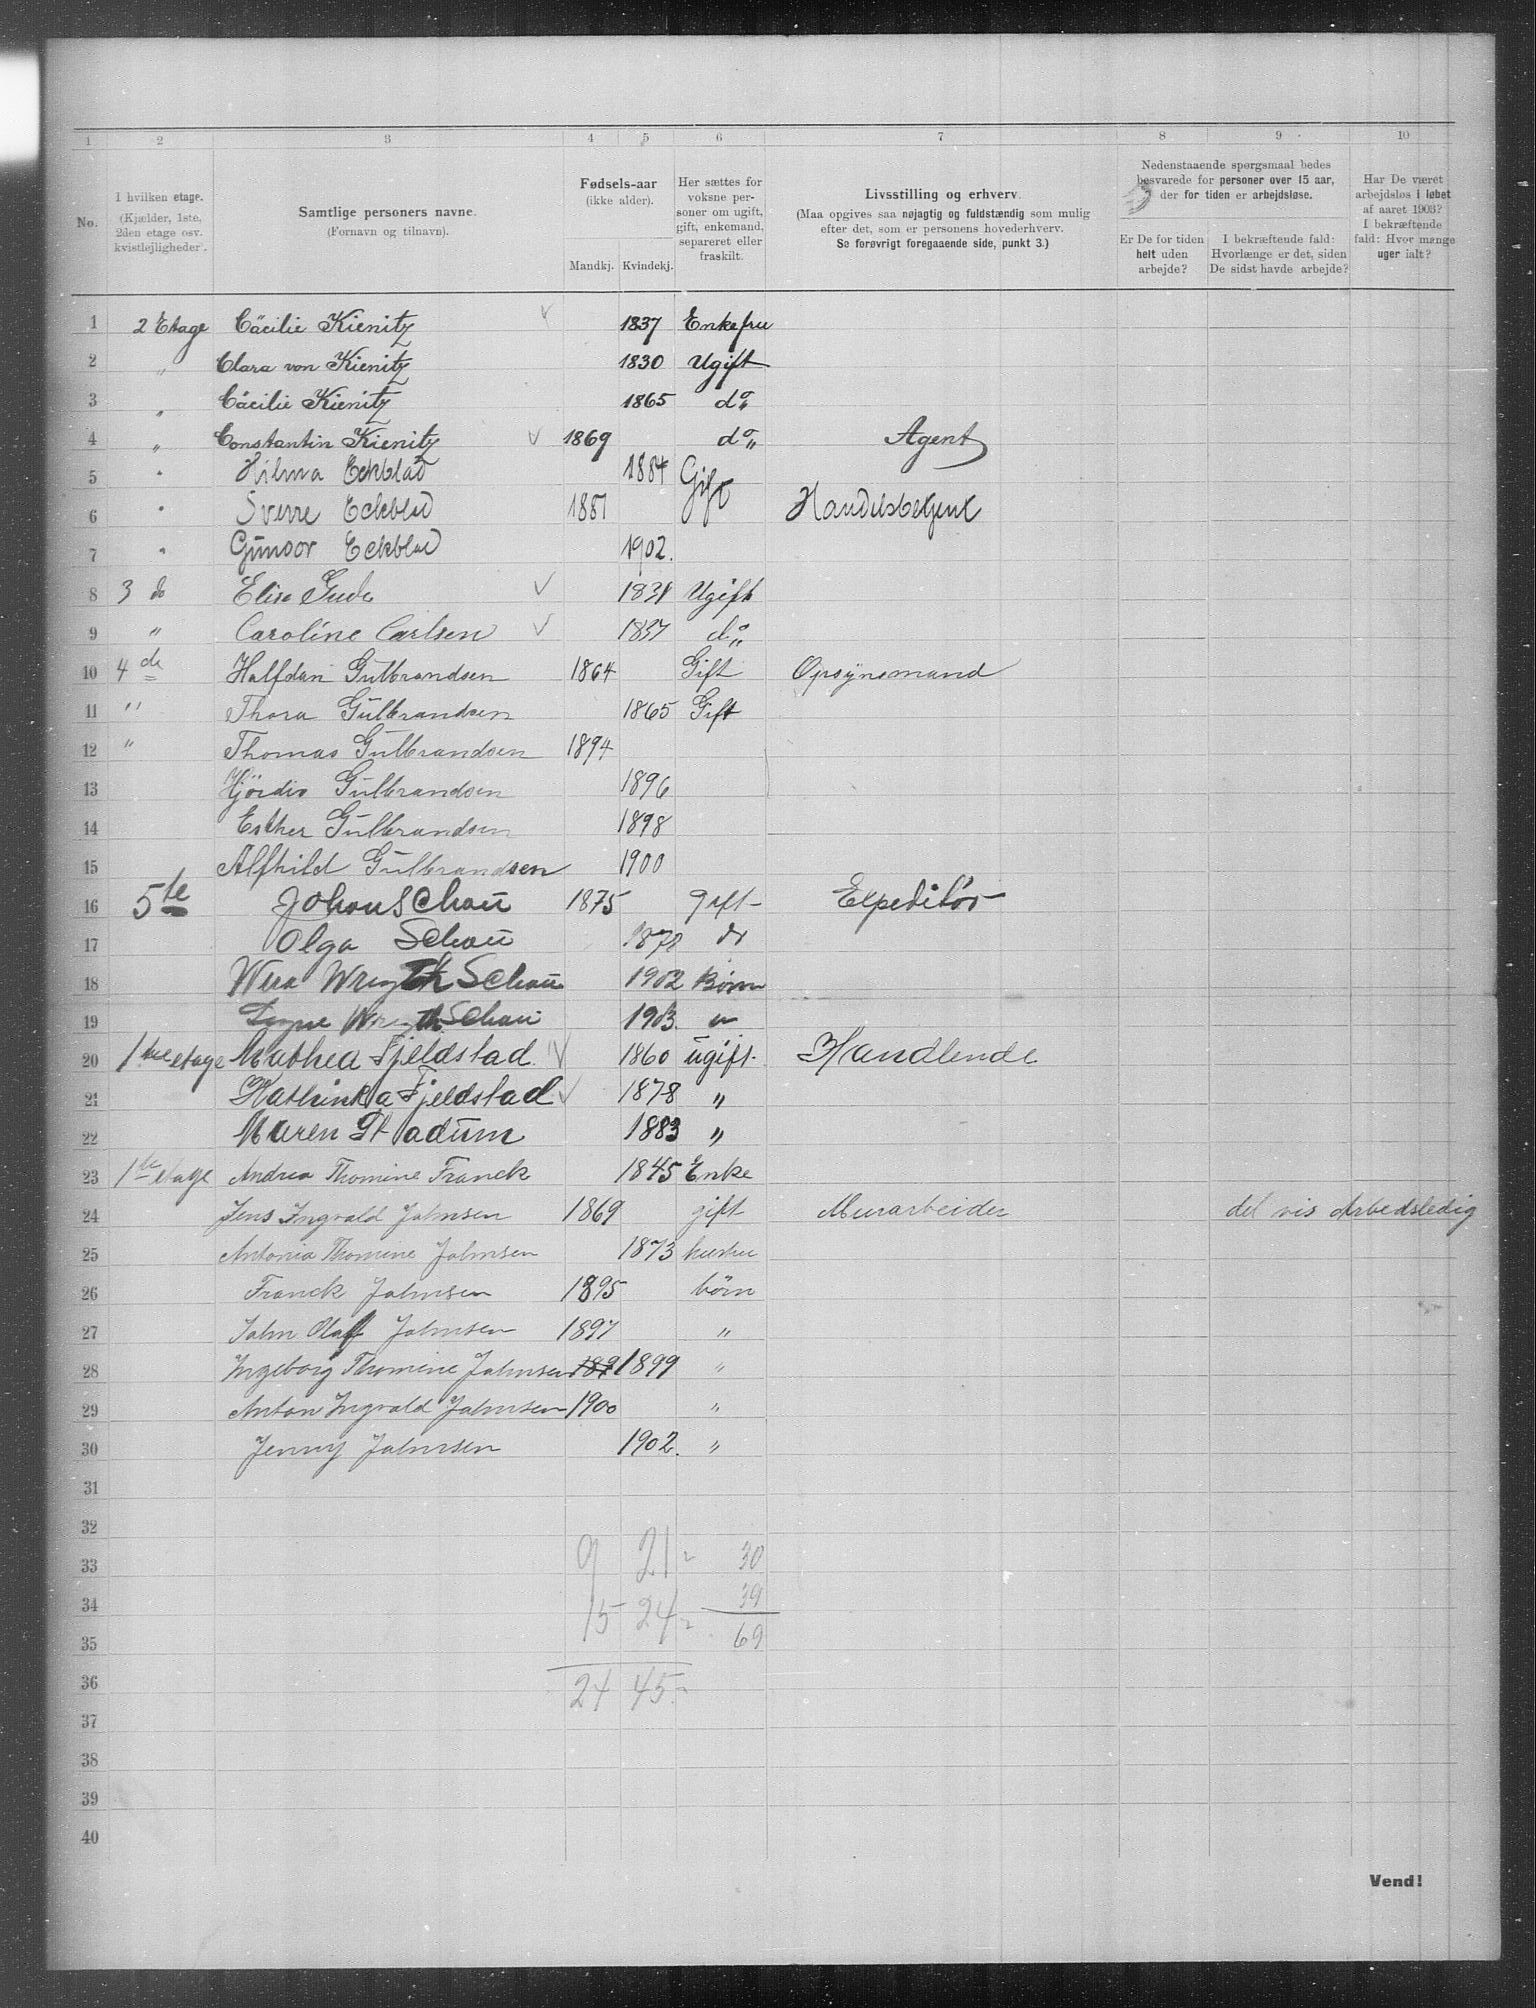 1 2 3 4 5 6 7 8 9 10
No.
I hvilken etage. (Kjælder, 1ste, 2den etage osv. kvistlejligheder).
Samtlige personers navne. (Fornavn og tilnavn).
Fødsels-aar (ikke alder).
Mandkj. Kvindekj.
Her sættes for voksne personer om ugift, gift, enkemand, separeret eller fraskilt.
Livsstilling og erhverv. (Maa opgives saa nøjagtig og fuldstændig som mulig efter det, som er personens hovederhverv. Se forøvrigt foregaaende side, punkt 3.)
Nedenstaaende spørgsmaal bedes besvarede for personer over 15 aar, der for tiden er arbejdsløse.
Er De for tiden helt uden arbejde?
I bekræftende fald: Hvorlænge er det, siden De sidst havde arbejde?
Har De været arbejdsløs i løbet af aaret 1903? I bekræftende fald: Hvor mange uger ialt?
1 2 Etage Cäcilie Kienitz 1837 Enkefru
2 " Clara von Kienitz 1830 Ugift
3 " Cäcilie Kienitz 1865 do "
4 " Constantin Kienitz 1869 do " Agent
5 " Hilma Eckblad 1884 Gift
6 " Sverre Eckblad 1881 Gift Handelsbetjent
7 " Gunvor Eckblad 1902.
8 3 do Elise Gude 1831 Ugift
9 " Caroline Carlsen 1837 do "
10 4 de Halfdan Gulbrandsen 1864 Gift Opsynsmand
11 " Thora Gulbrandsen 1865 Gift
12 " Thomas Gulbrandsen 1894
13 Hjördis Gulbrandsen 1896
14 Esther Gulbrandsen 1898
15 Alfhild Gulbrandsen 1900
16 5te Johan Schau 1875 gift Expeditør
17 Olga Schau 1878 do
18 Wera Schau 1902 Børn
19 Schau 1903. "
20 1ste etage Mathea Fjeldstad 1860 ugift. Handlende
21 Kathinka Fjeldstad 1878 "
22 Maren Stadum 1883 "
23 1te etage Andrea Thomine Franck 1845 Enke
24 Jens Ingvald Johnsen 1869 gift Murarbeider del vis Arbedsledig
25 Antonia Thomine Johnsen 1873 hustru
26 Franck Johnsen 1895 börn
27 John Olaf Johnsen 1897 "
28 Ingeborg Thomine Johnsen 189 1899 "
29 Anton Ingvald Johnsen 1900 "
30 Jenny Johnsen 1902. "
31
32
33 9 21 = 30
34 15 24 = 39
35 69
36 24 45 =
37
38
39
40
Vend!